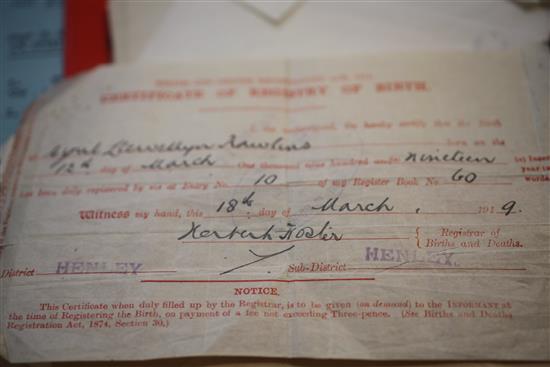 CERTIFICATE OF REGISTRY OF BIRTH.
I, the undersigned, do hereby certify that the Birth
of Cyril Llewellyn Rawlins born on the
12th day of March One thousand nine hundred and nineteen (a) Insert
year in
words.
has been duly registered by me at Entry No. 10 of my Register Book No 60
Witness my hand, this 18th day of March, 1919.
Herbert Foster { Registrar of
Births and Deaths.
District HENLEY Sub-District HENLEY.
NOTICE
This Certificate when duly filled up by the Registrar, is to be given (on demand) to the INFORMANT at
the time of Registering the Birth, on payment of a fee not exceeding Three-pence. (See Births and Deaths
Registration Act, 1874, Section 30.)